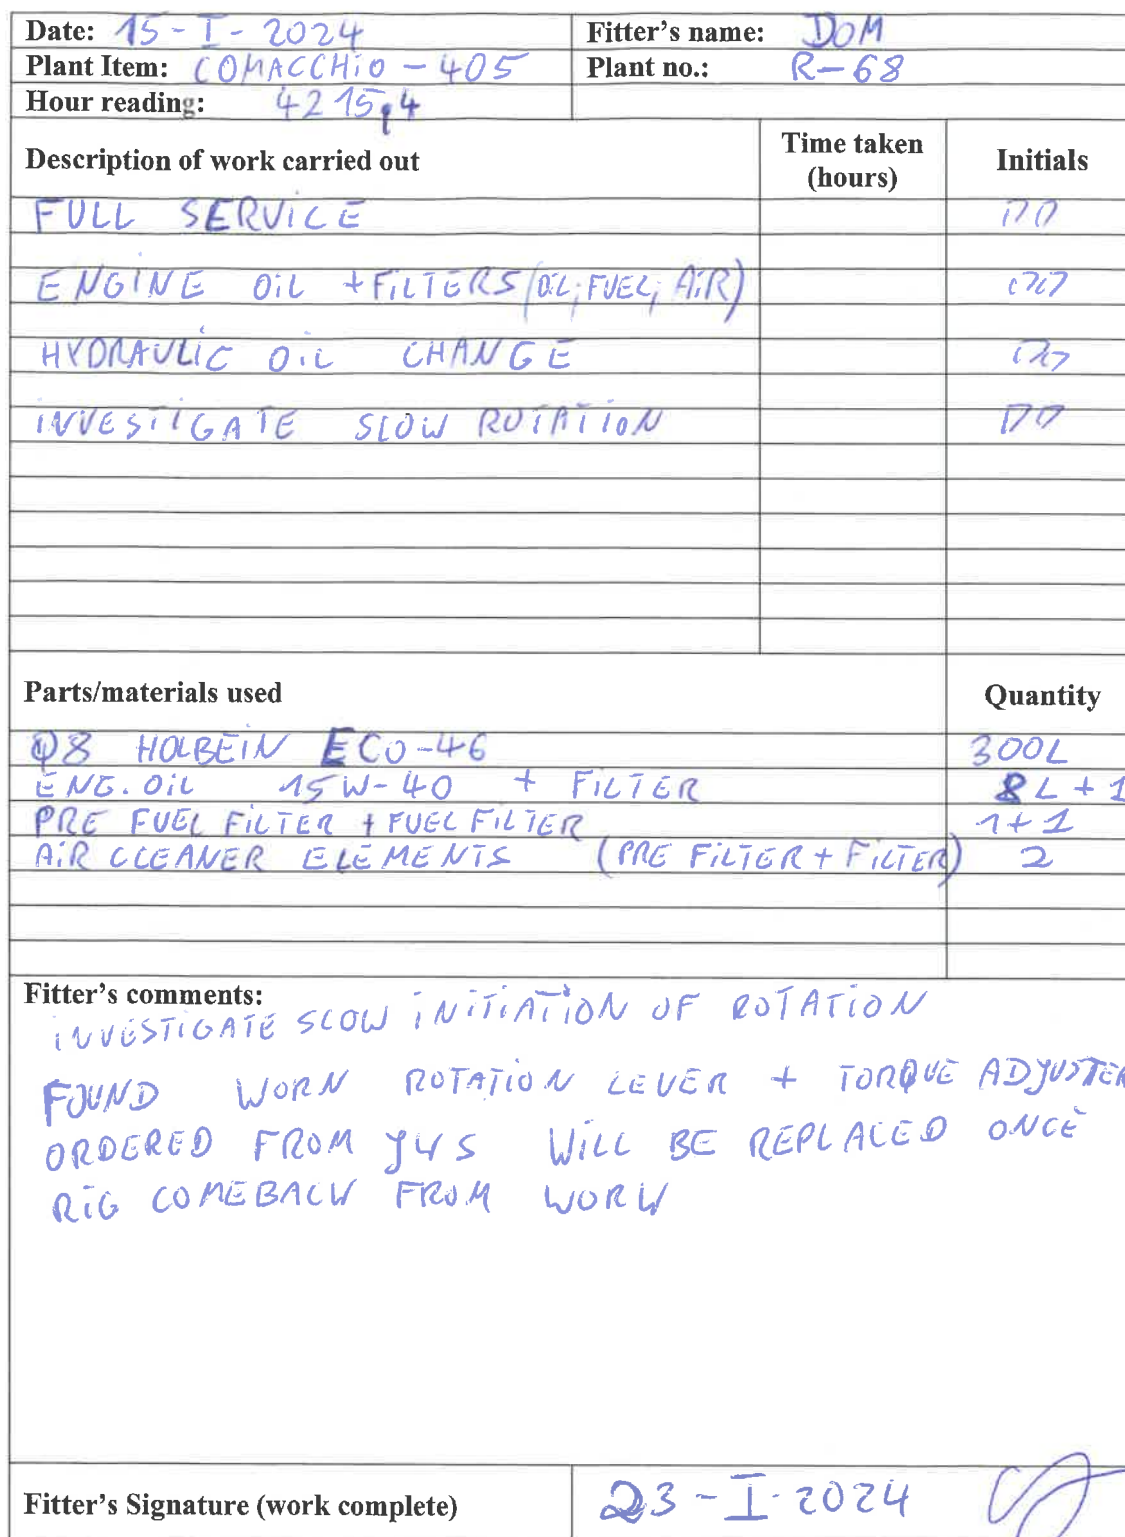 Date: 15-I-2024 Fitter's name: DOM
Plant Item: COMACCHiO-405 Plant no.: R-68
Hour reading: 4215,4
Description of work carried out Time taken (hours) Initials
FULL SERViCE DD
ENGINE OiL +FiLTERS(OiL;FUEL;AiR)
HYDRAULiC OiL CHANGE
iNVESTiGATE SLOW ROTATiON DD
Parts/materials used Quantity
Q8 HOLBEiN ECO-46 300L
ENG.OiL 15W-40 + FiLTER 8L+1
PRE FUEL FiLTER + FUEL FiLTER 1+1
AiR CLEANER ELEMENTS (PRE FiLTER + FiLTER) 2
Fitter's comments:
iNVESTiGATE SLOW iNiTiATiON OF ROTATiON
FOUND WORN ROTATiON LEVER + TORQUE ADJUSTER
ORDERED FROM WiLL BE REPLACED ONCE
RiG COMEBACK FROM WORK
Fitter's Signature (work complete) 23-I-2024